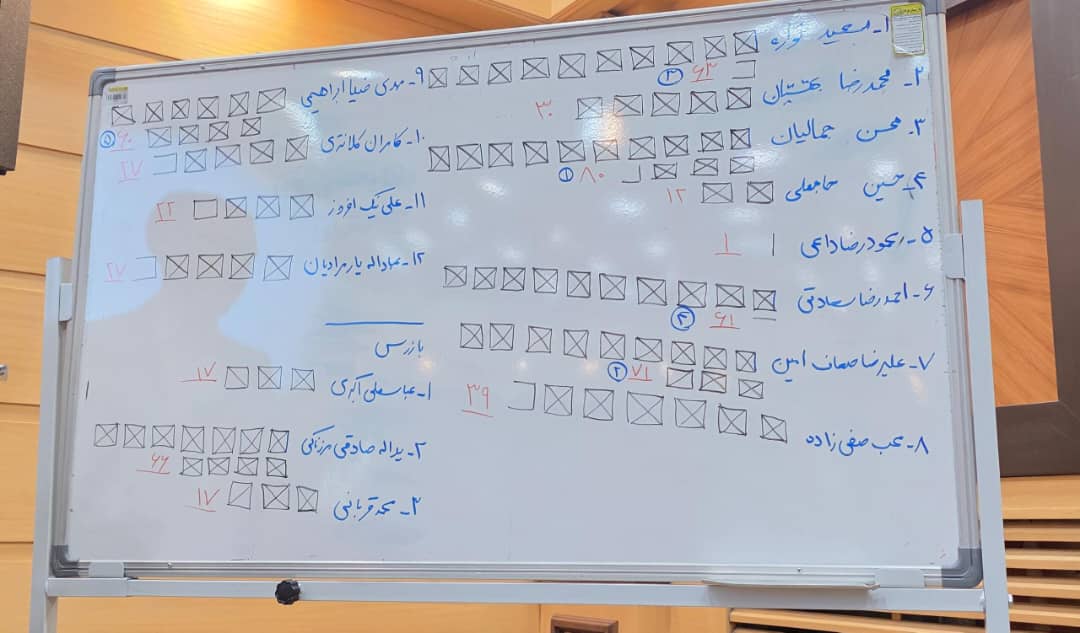 ۱- سعید
۶۳ ③
۲- محمدرضا بهشتیان
۳۰
۳- محسن جمالیان
۸۰ ①
۴- حسین حاجعلی
۱۲
۵- رضا داعی
۱
۶- احمدرضا سعادتی
۶۱ ④
۷- علیرضا صحاف امین
۷۱ ②
۸- محب صفی زاده
۳۹
۹- مهدی ضیا ابراهیمی
۶۰ ⑤
۱۰- کامران کلانتری
۲۷
۱۱- علی نیک افروز
۲۲
۱۲- عبداله یارمرادیان
۲۷
بازرس
۱- عباسعلی اکبری
۱۷
۲- یداله صادقی مزرنکی
۶۶
۳- محمد قربانی
۱۷